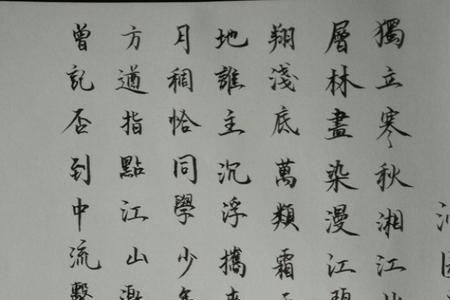 獨立寒秋湘江
層林盡染漫江碧
翔淺底萬類霜
地誰主沉浮攜來
月稠恰同學少年
方遒指點江山激
曾記否到中流擊